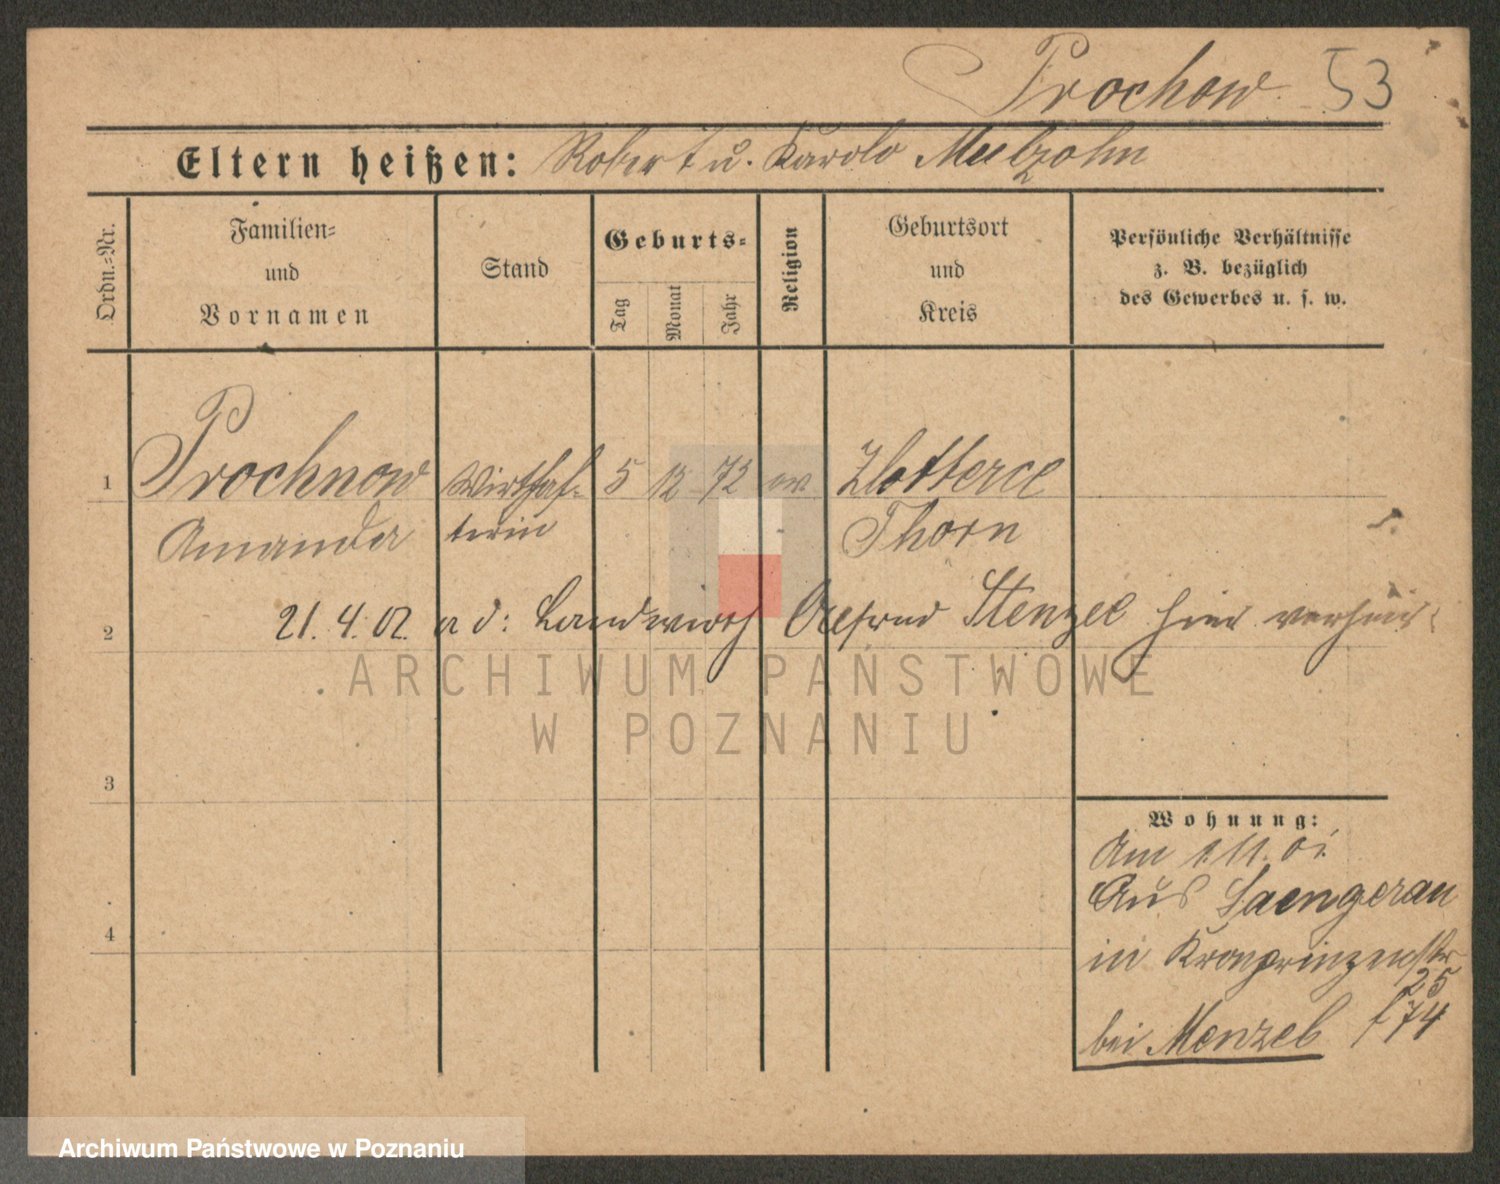 Prochow 53
Eltern heißen: Robert u. Karolo Mulzohn
Ordn.-Nr.
Familien-
und
Vornamen
Stand
Geburts-
Tag
Monat
Jahr
Religion
Geburtsort
und
Kreis
Persönliche Verhältnisse
z. B. bezüglich
des Gewerbes u. s. w.
1 Prochnow Wirthschaf- 5 12 72 ev. Zlotterce
Amanda terin Thorn
2 21. 4. 02. a d: Landwirth Stenzel hier verheir:
ARCHIWUM PAŃSTWOWE
W POZNANIU
3
Wohnung:
Am 1.11.01.
Aus Saengerau
4
in Kronprinzenstr
25
bei Menzel 74
Archiwum Państwowe w Poznaniu